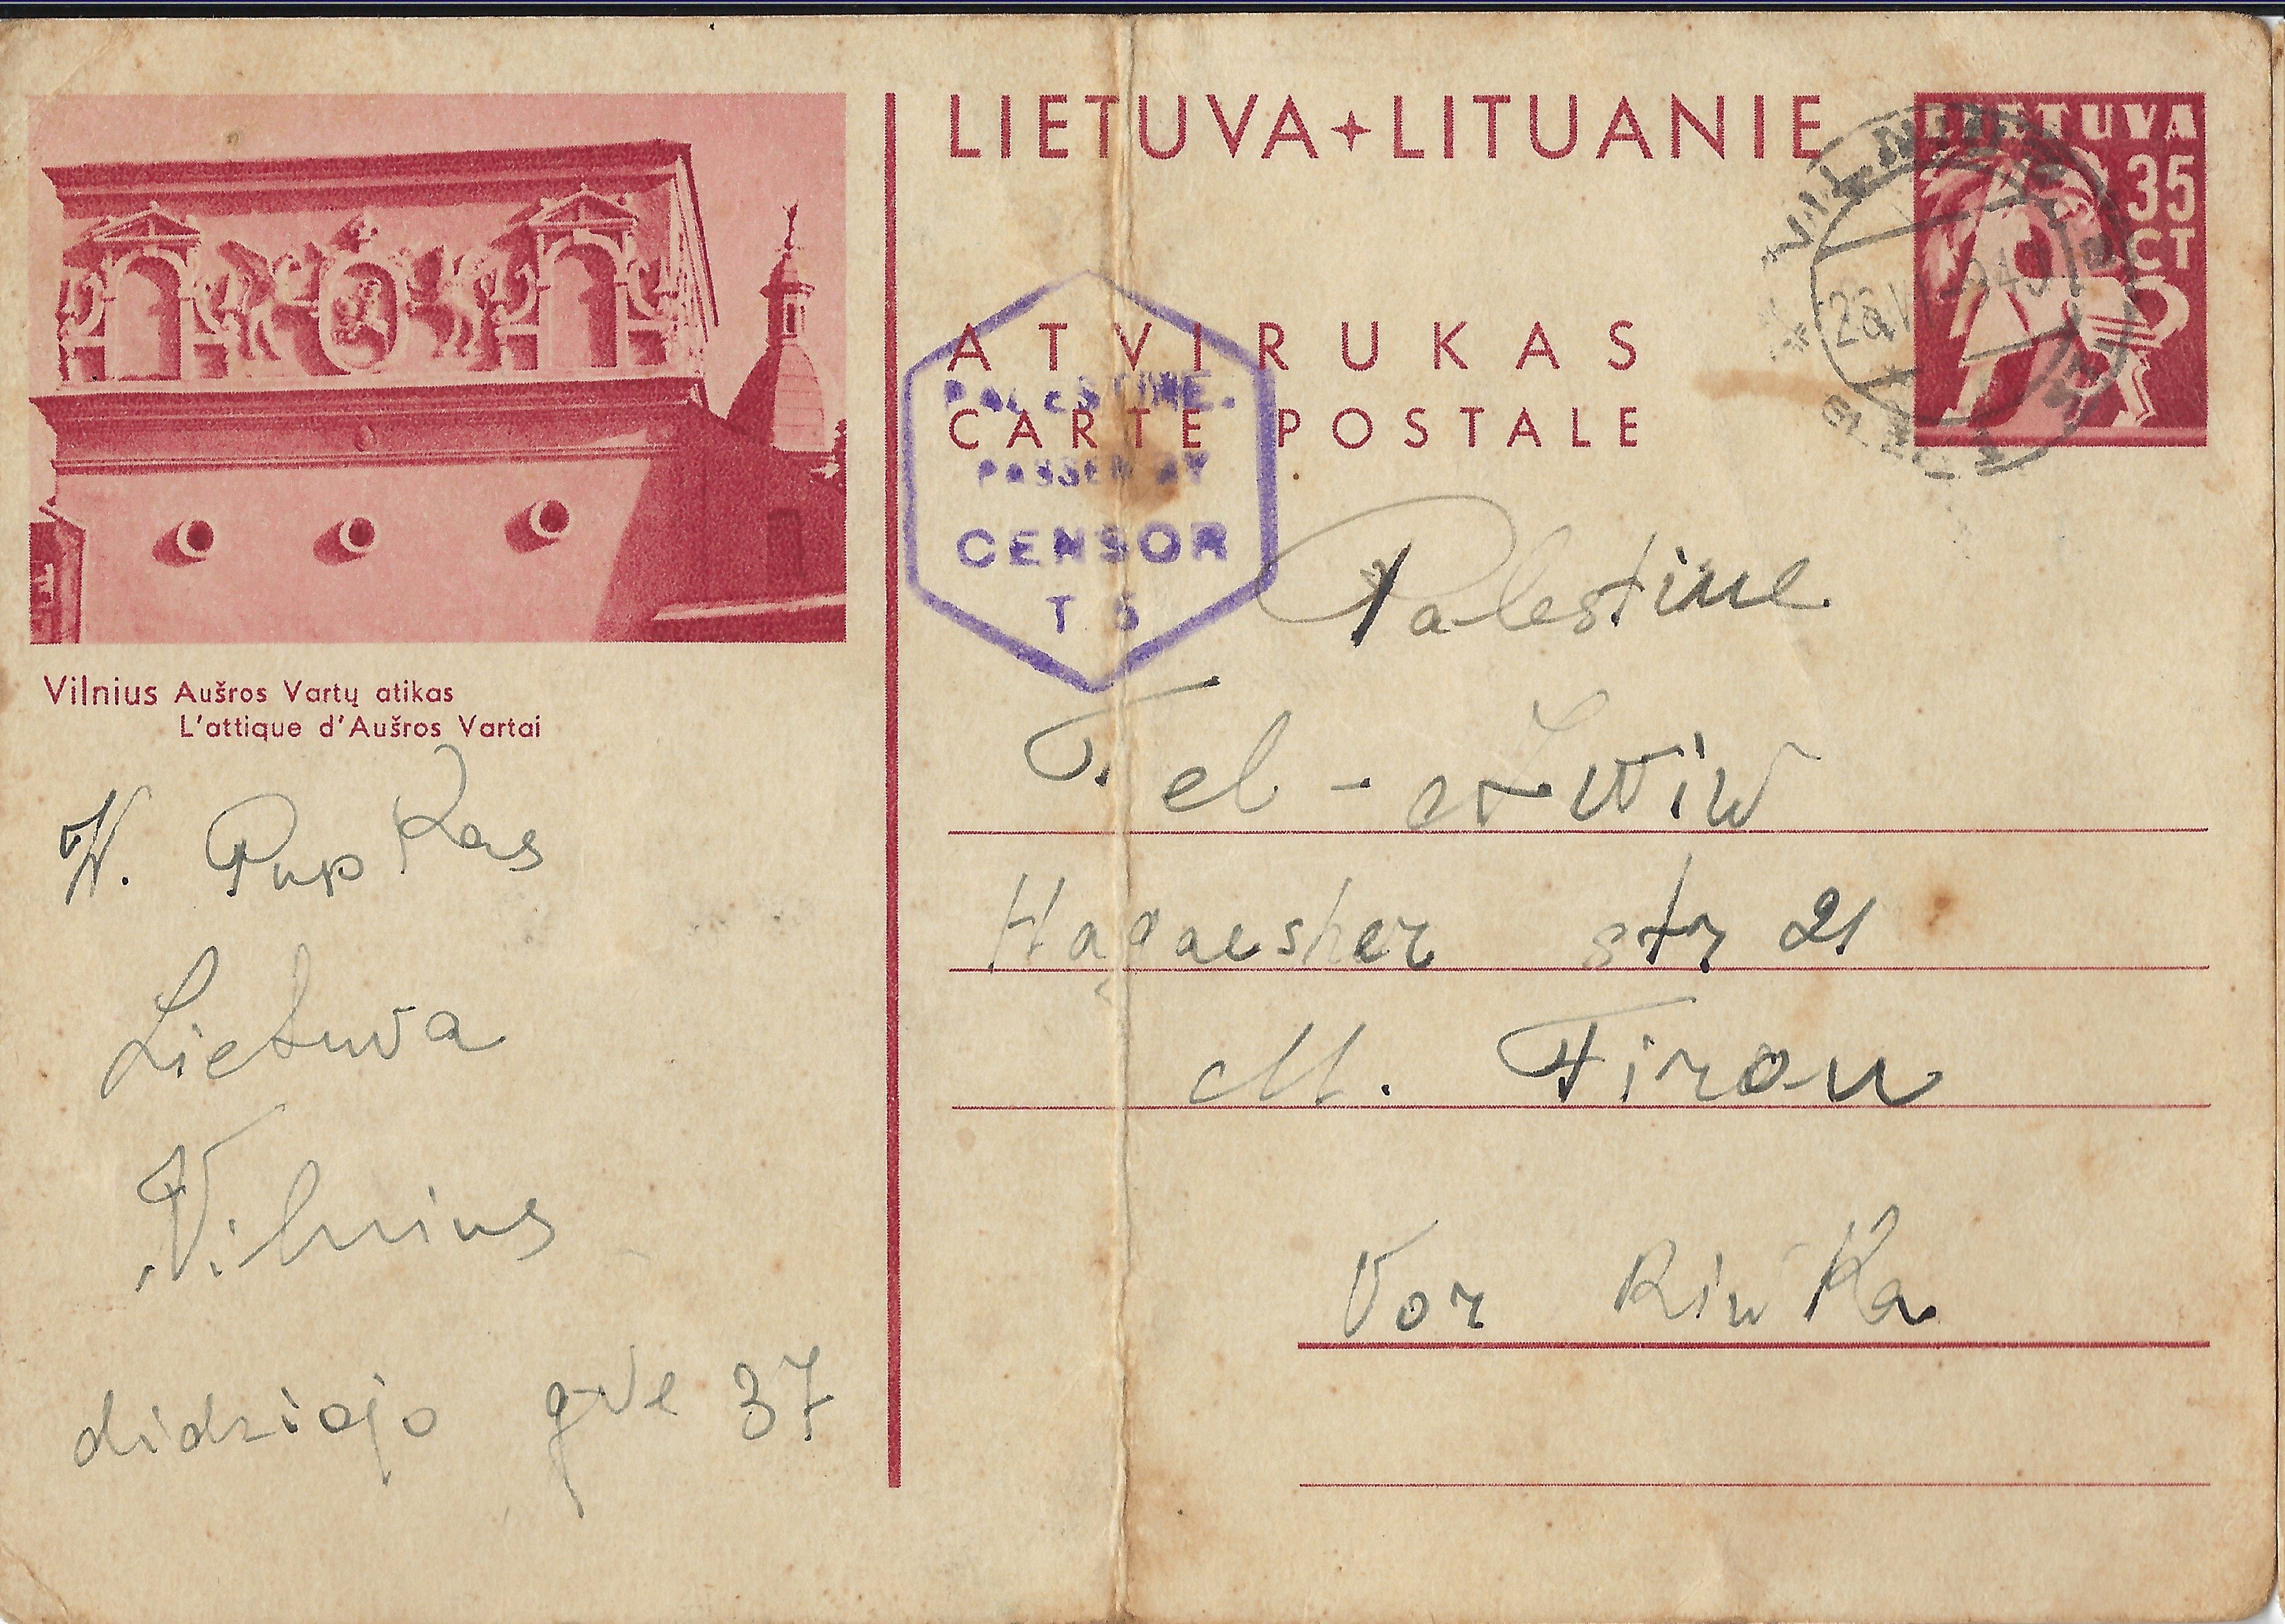 LIETUVA+LITUANIE
LIETUVA
35
CT
VILNIUS
ATVIRUKAS
CARTE POSTALE
PALESTINE.
PASSED BY
CENSOR
T 5
Vilnius Aušros Vartų atikas
L'attique d'Aušros Vartai
W. Pupkas
Lietuva
Vilnius
didziojo gve 37
Palestine
Tel-Awiw
str 21
M. Tiron
Vor Riwka